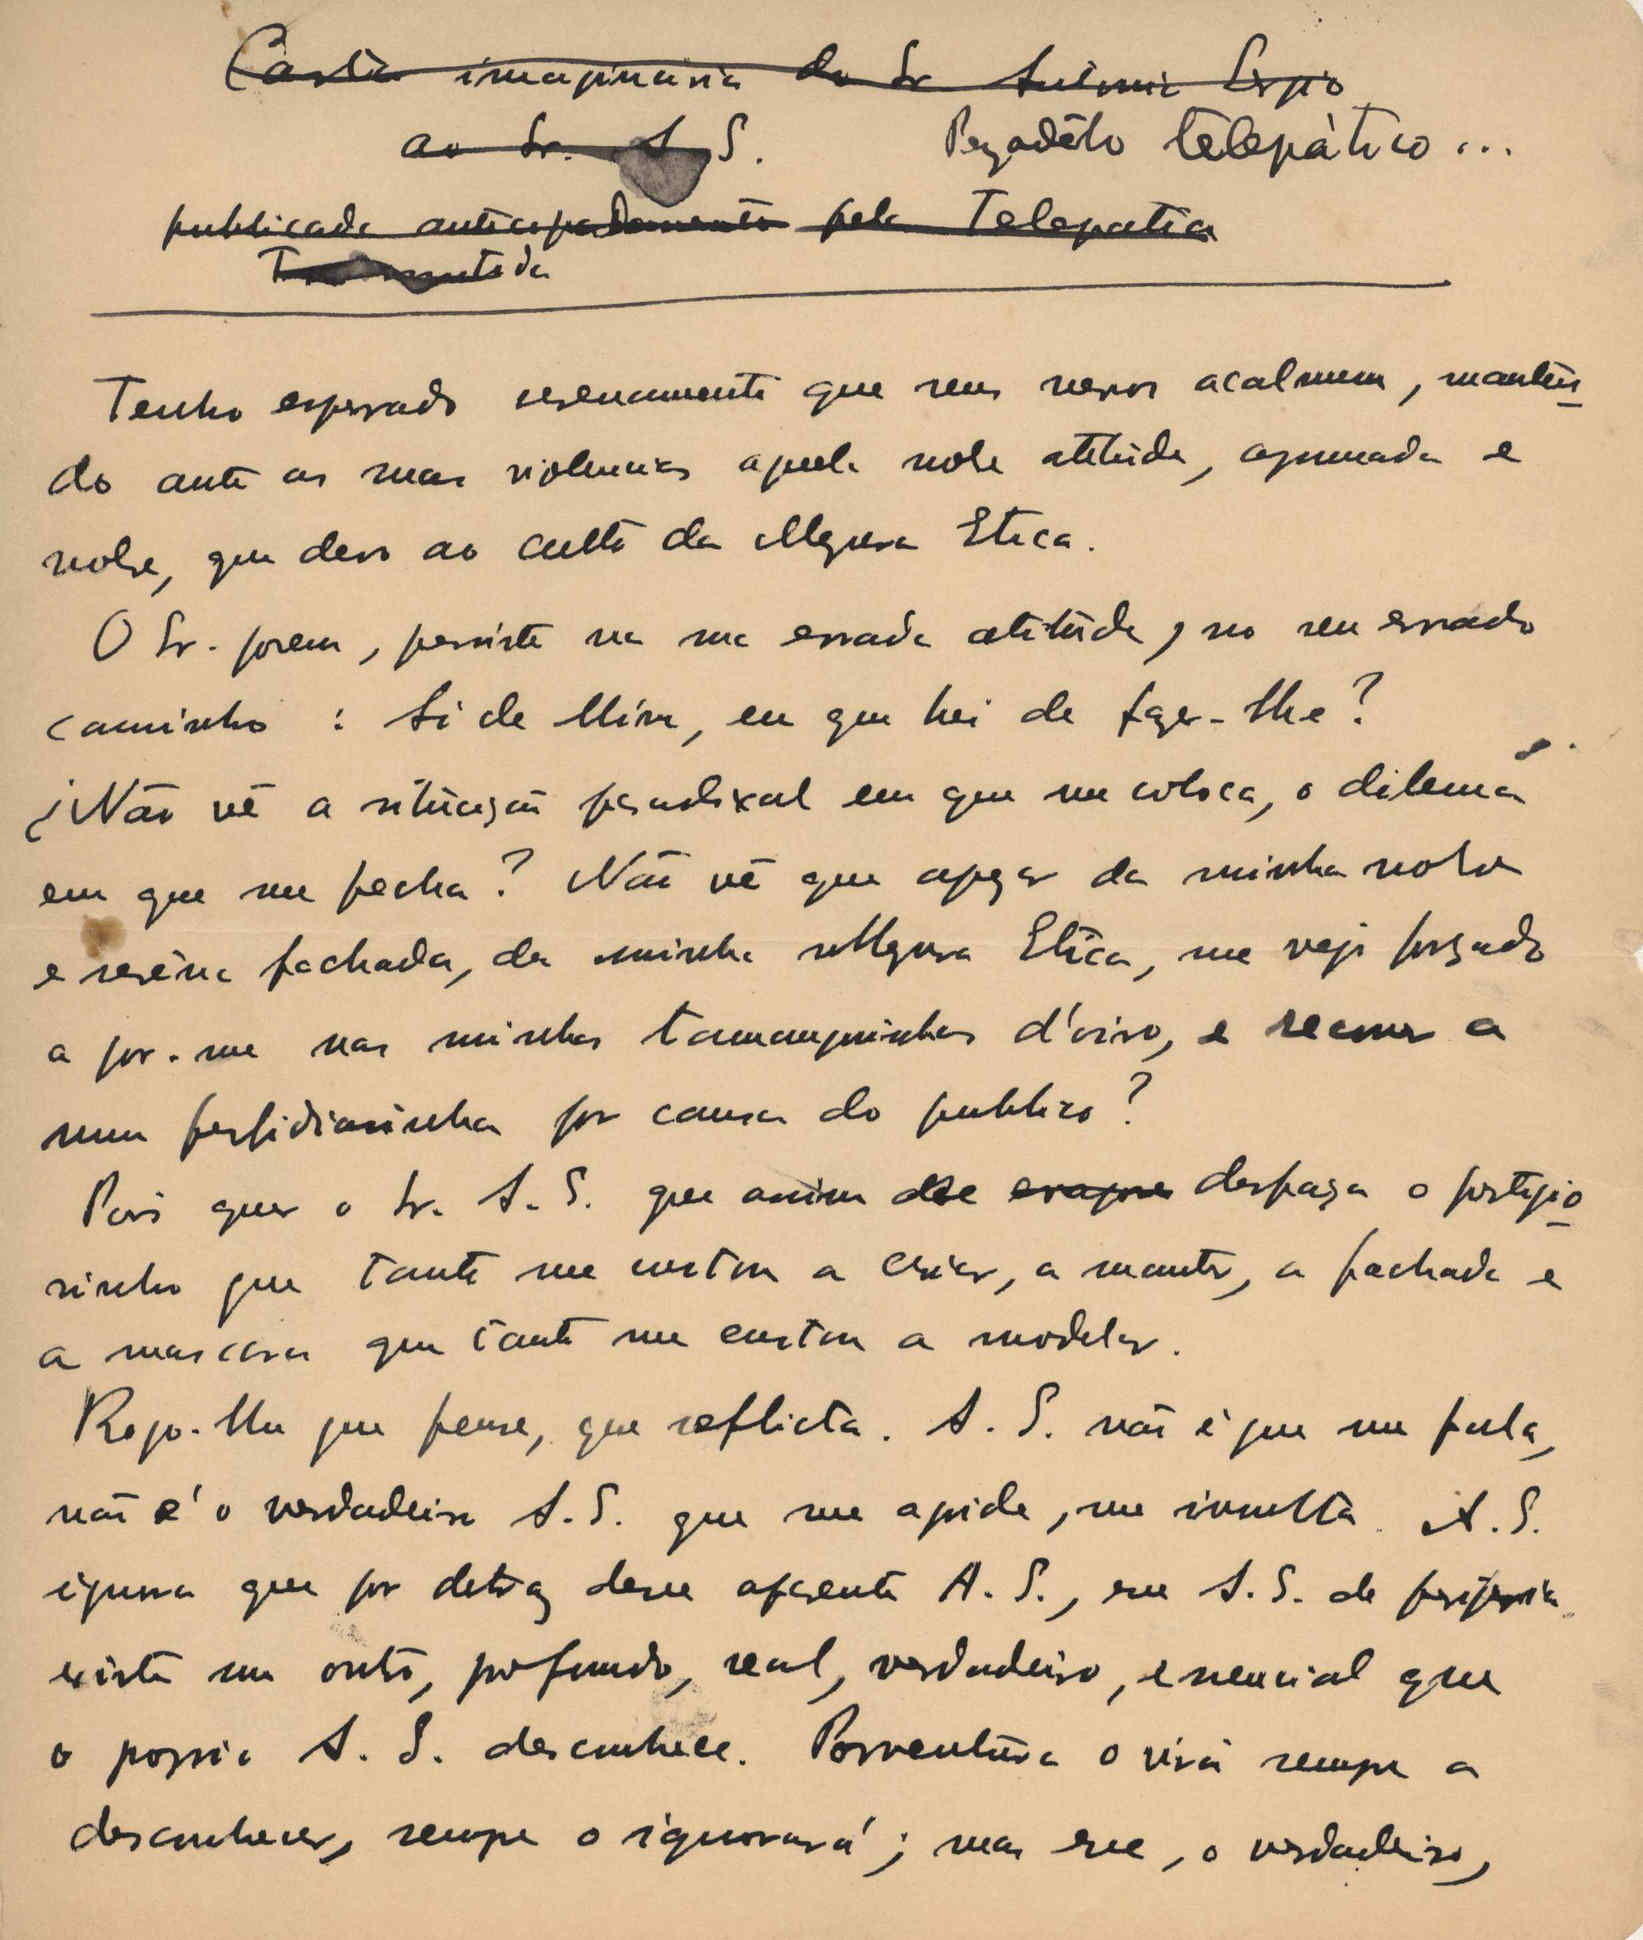 Carta imaginaria do Sr Antonio Sergio
ao Sr. A. S. Pezadêlo telepàtico ...
publicada antecipadamente pela Telepatia
Tenho esperado serenamente que seus nervos acalmem, manten-
do ante as suas violencias aquela nobre atitude, aprumada e
nobre, que devo ao culto da Magna Etica.
O Sr. porem, persiste na sua errada atitude, no seu errado
caminho : A. S. de Mim, eu que hei de fazer-lhe?
¿Não vê a situação paradoxal em que me coloca, o dilema
em que me fecha? Não vê que apezar da minha nobre
e seréna fachada, da minha Magna Etica, me vejo forçado
a por-me nas minhas tamanquinhas d'oiro, e recorrer a
uma perfidiasinha por causa do publico?
Pois quer o Sr. A. S. que assim desfaça o prestigio-
sinho que tanto me custou a criar, a manter, a fachada e
a mascara que tanto me custou a modelar.
Rogo-lhe que pense, que reflicta. A. S. não é que me fala,
não é o verdadeiro A. S. que me agride, me insulta. A. S.
ignora que por detraz desse aparente A. S., esse A. S. de periferia
existe um outro, profundo, real, verdadeiro, essencial que
o proprio A. S. desconhece. Porventura o virá sempre a
desconhecer, sempre o ignorará; mas esse, o verdadeiro,